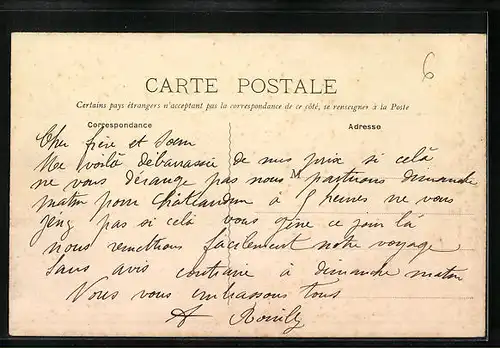 6
CARTE POSTALE
Certains pays étrangers n'acceptant pas la correspondance de ce côté, se renseigner à la Poste
Correspondance
Adresse
M
Cher frère et Sœur
Me voilà débarassée de mes prix si celà
ne vous dérange pas nous partirons dimanche
matin pour Châteaudun à 5 heures ne vous
genez pas si celà vous gène ce jour là
nous remettrons facilement notre voyage
Sans avis contraire à dimanche matin
Nous vous embrassons tous
A